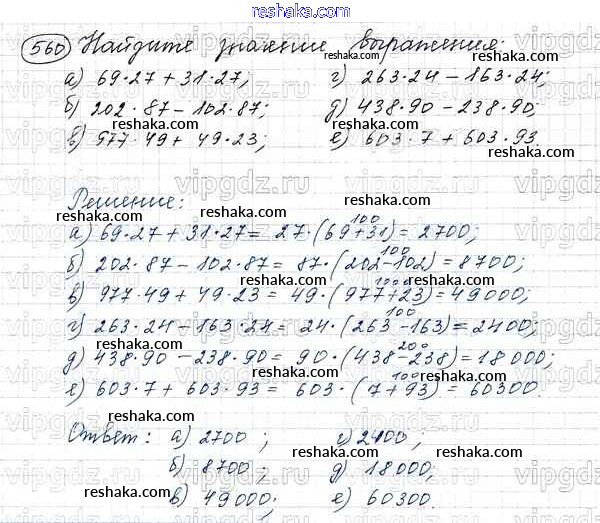 reshaka.com
560 Найдите значение выражения:
а) 69·27 + 31·27; г) 263·24 − 163·24;
б) 202·87 − 102·87; д) 438·90 − 238·90;
в) 977·49 + 49·23; е) 603·7 + 603·93.
Решение:
а) 69·27 + 31·27 = 27·(69+31) = 2700;
100
б) 202·87 − 102·87 = 87·(202−102) = 8700;
100
в) 977·49 + 49·23 = 49·(977+23) = 49000;
1000
г) 263·24 − 163·24 = 24·(263−163) = 2400;
100
д) 438·90 − 238·90 = 90·(438−238) = 18000;
200
е) 603·7 + 603·93 = 603·(7+93) = 60300.
100
Ответ: а) 2700; г) 2400;
б) 8700; д) 18000;
в) 49000; е) 60300.